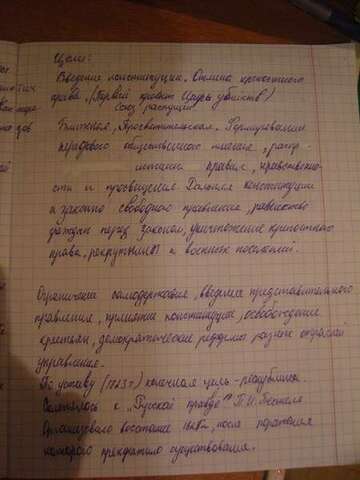 Цели:
Введение конституции. Отмена крепостного
права. (Первый проект Цареубийств)
Союз распущен
Ближняя, Просветительская. Формирование
передового общественного мнения,
правил, нравственно-
сти и просвещения. Дальняя конституции
и законно свободное правление, равенство
граждан перед законом, уничтожение крепостного
права, рекрутчины и военных поселений.
Ограничение самодержавия, введение представительного
правления, принятие конституции, освобождение
крестьян, демократические реформы разных отраслей
управления.
По уставу конечная цель - республика.
"Русской правде" П.И. Пестеля
Организовало восстание после поражения
которого прекратило существование.